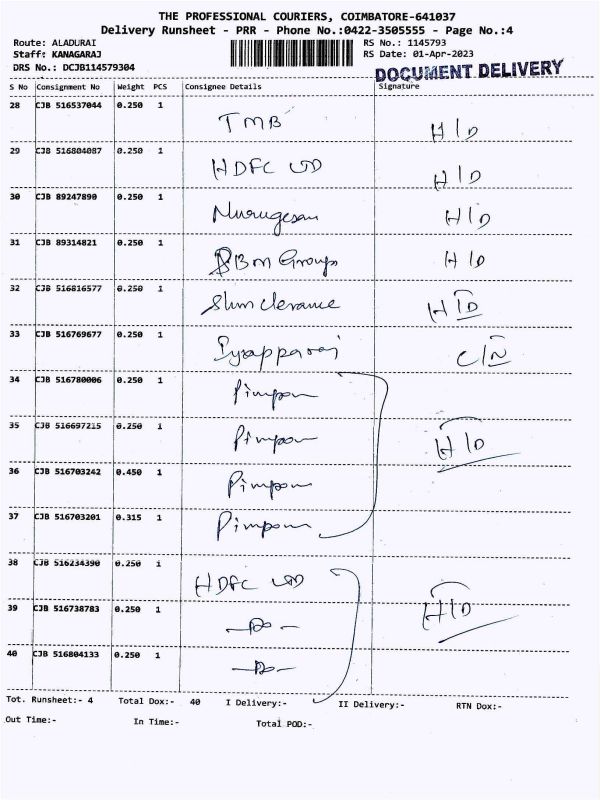 THE PROFESSIONAL COURIERS, COIMBATORE-641037
Delivery Runsheet - PRR - Phone No.:0422-3505555 - Page No.:4
Route: ALADURAI RS No.: 1145793
Staff: KANAGARAJ RS Date: 01-Apr-2023
DRS No.: DCJB114579304 DOCUMENT DELIVERY
S No Consignment No Weight PCS Consignee Details Signature
28 CJB 516537044 0.250 1 TMB H/D
29 CJB 516804087 0.250 1 HDFC H/D
30 CJB 89247890 0.250 1 Murugesan H/D
31 CJB 89314821 0.250 1 SBM Groups H/D
32 CJB 516816577 0.250 1 H/D
33 CJB 516769677 0.250 1 C/N
34 CJB 516780006 0.250 1 Pimpom
35 CJB 516697215 0.250 1 Pimpom H/D
36 CJB 516703242 0.450 1 Pimpom
37 CJB 516703201 0.315 1 Pimpom
38 CJB 516234390 0.250 1 HDFC
39 CJB 516738783 0.250 1 -Do- H/D
40 CJB 516804133 0.250 1 -Do-
Tot. Runsheet:- 4 Total Dox:- 40 I Delivery:- II Delivery:- RTN Dox:-
Out Time:- In Time:- Total POD:-